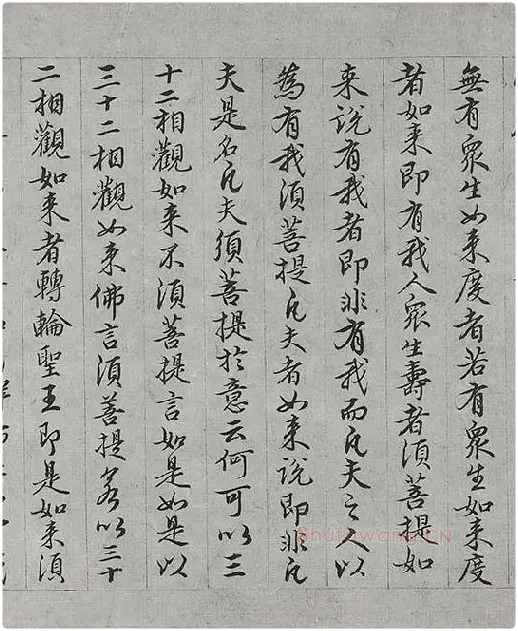 無有眾生如来度者若有眾生如来度
者如来即有我人眾生壽者須菩提如
来說有我者即非有我而凡夫之人以
為有我須菩提凡夫者如来說即非凡
夫是名凡夫須菩提於意云何可以三
十二相觀如来不須菩提言如是如是以
三十二相觀如来佛言須菩提若以三十
二相觀如来者轉輪聖王即是如来須